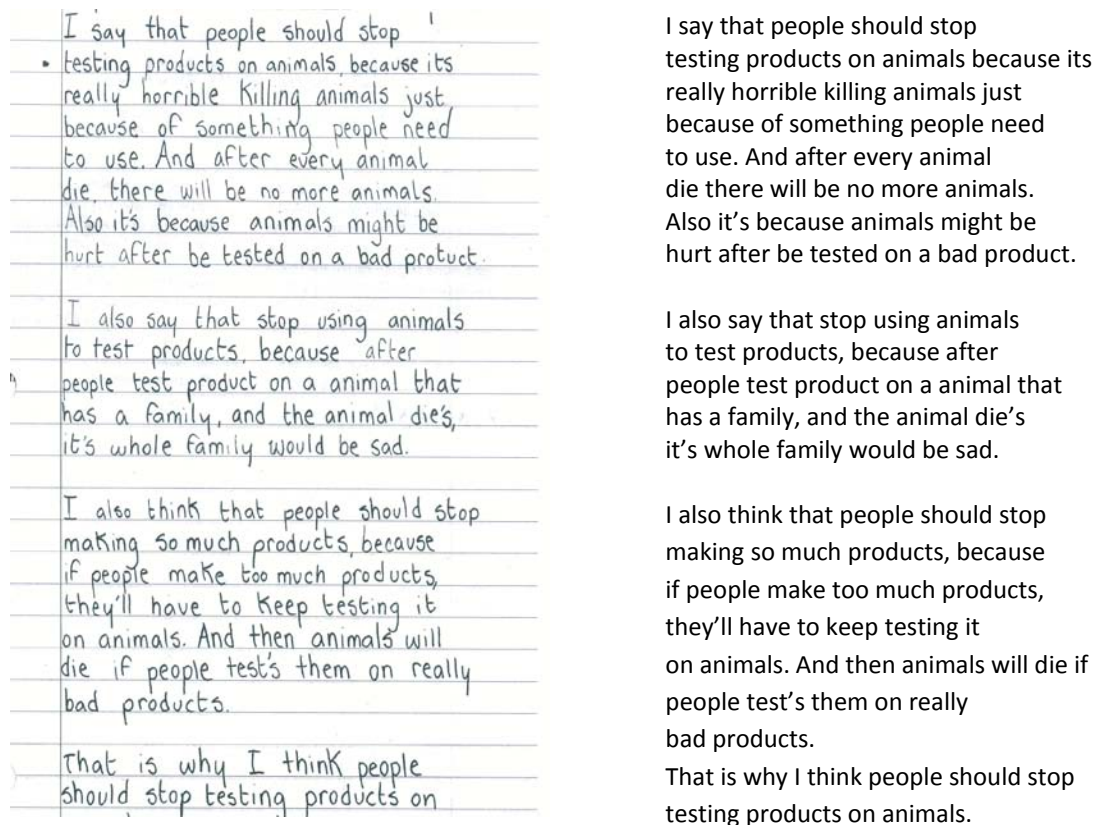 I say that people should stop
• testing products on animals, because its
really horrible killing animals just
because of something people need
to use. And after every animal
die, there will be no more animals.
Also it's because animals might be
hurt after be tested on a bad protuct.
I also say that stop using animals
to test products, because after
people test product on a animal that
has a family, and the animal die's,
it's whole family would be sad.
I also think that people should stop
making so much products, because
if people make too much products,
they'll have to keep testing it
on animals. And then animals will
die if people test's them on really
bad products.
That is why I think people
should stop testing products on
I say that people should stop
testing products on animals because its
really horrible killing animals just
because of something people need
to use. And after every animal
die there will be no more animals.
Also it’s because animals might be
hurt after be tested on a bad product.
I also say that stop using animals
to test products, because after
people test product on a animal that
has a family, and the animal die’s
it’s whole family would be sad.
I also think that people should stop
making so much products, because
if people make too much products,
they’ll have to keep testing it
on animals. And then animals will die if
people test’s them on really
bad products.
That is why I think people should stop
testing products on animals.